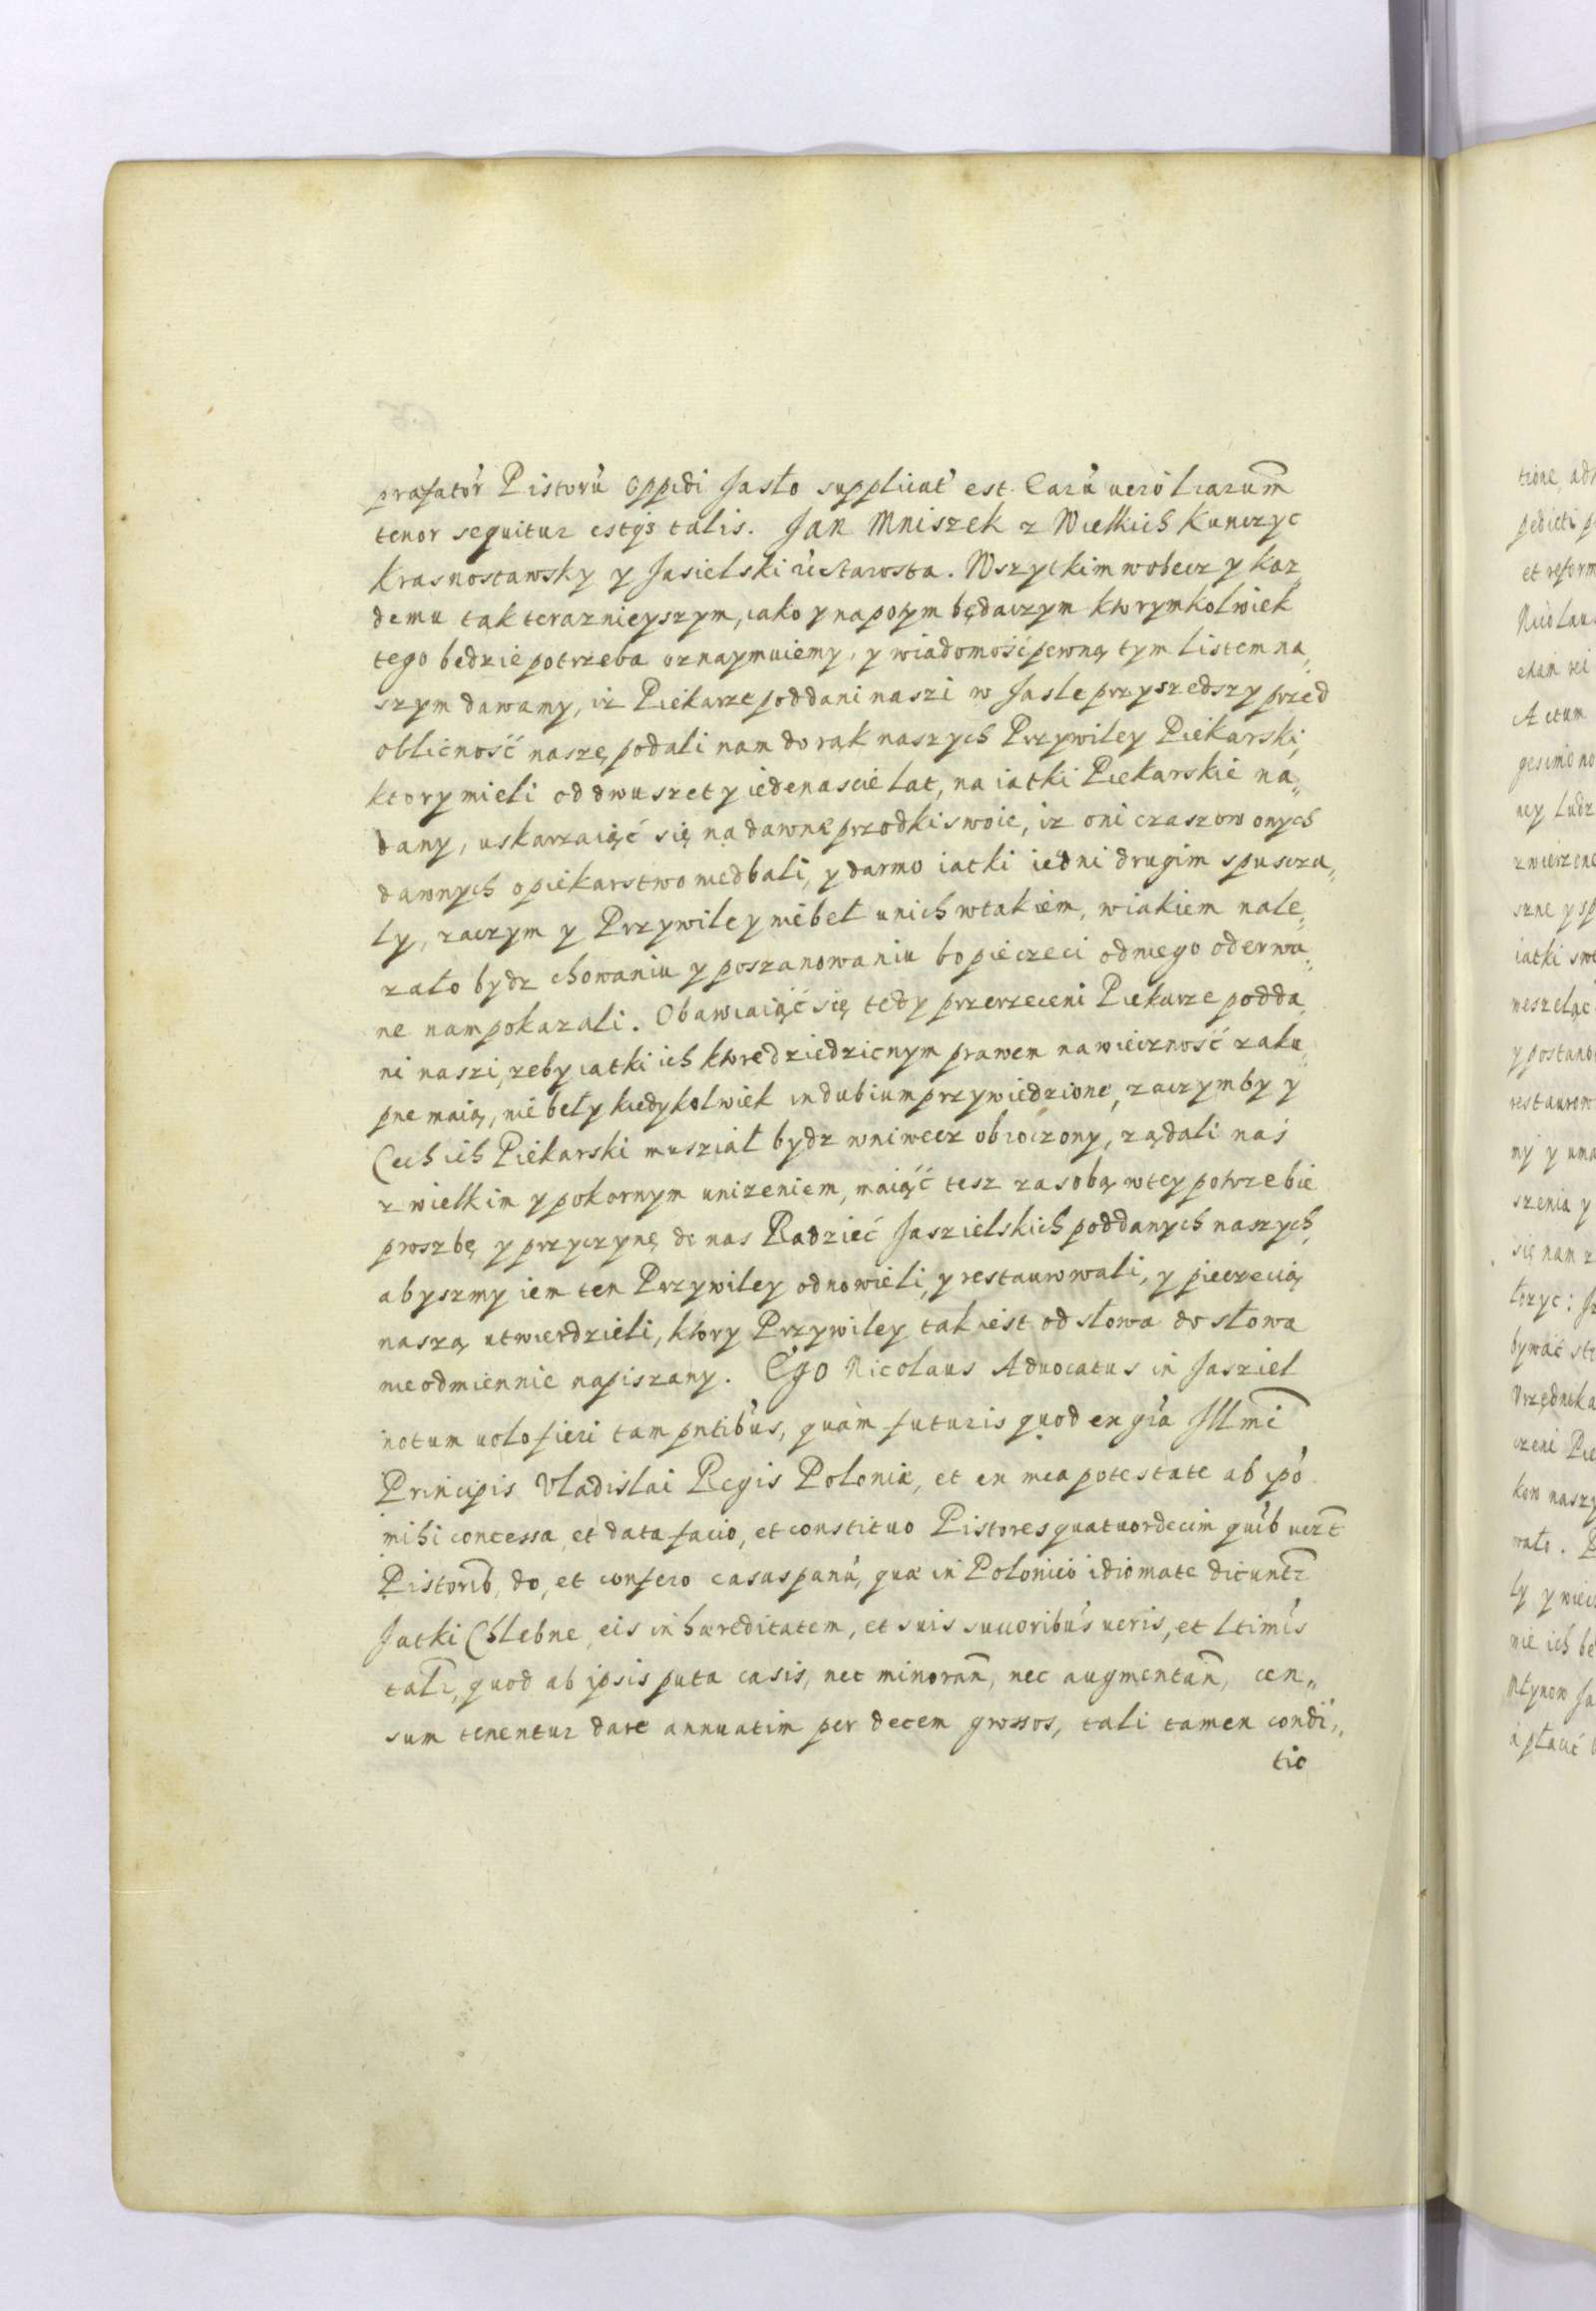 præfatór Pistorú Oppidi Jasło supplicat́ est. Earú veró lrarum̃
tenor sequitur estq́3 talis. Jan Mniszek z Wielkich Kunczyc
Krasnostawsky y Jasielski ć Starosta. Wszytkim wobecz y kaz„
demu tak teraznieyszym, iako y napotym będaczym ktorymkolwiek
tego będzie potrzeba oznaymuiemy, y wiadomość pewną tym listem na„
szym dawamy, iz Piekarze poddani naszi w Jasle przyszedszy przed
oblićność naszę podali nam do rąk naszych Przywiley Piekarski,
ktory mieli od dwuszet y iedenascie lat, na iatki Piekarskie na„
dany, uskarzaiąć się na dawne przodki swoie, iz oni czaszow onych
dawnych o piekarstwo niedbali, y darmo iatki iedni drugim spuscza„
ly, zaczym y Przywiley niebeł unich wtakiem, wiakiem nale„
zało bydz chowaniu y poszanowaniu bo pieczeci odniego oderwa„
ne nam pokazali. Obawiaiąć się tedy przerzeceni Piekarze podda„
ni naszi, zeby iatki ich ktore dziedzicnym prawem nawieczność zaku„
pne maią, nie beły kiedykolwiek in dubium przywiedzione, zaczymby y
Cech ich Piekarski musział bydz wniwecz obroczony, ządali naś
z wielkim y pokornym unizeniem, maiąć tesz za sobą wtey potrzebie
proszbę y przyczynę do nas Radzieć Jaszielskich poddanych naszych,
abyszmy iem ten Przywiley odnowieli, y restaurowali, y pieczecią
naszą utwierdzieli, ktory Przywiley tak iest od słowa do słowa
nieodmiennie napiszany. Ego Nicolaus Advocatus in Jasziel
notum volo fieri tam pntibús, quàm futuris quod ex grá Jllmĩ
Principis Vladislai Regis Poloniæ, et ex mea potestate ab ipó
mihi concessa et data facio, et constituo Pistores quatuordecim quib́ vert̃
Pistorib̃, do, et confero casas panú, quæ in Polonicó idiomate dicunt̃r
Jatki Chlebne eis in hæreditatem, et suis succoribús veris, et ltimís
talr̃, quod ab ipsis puta casis, nec minoran̄, nec augmentan̄, cen„
sum tenentur dare annuatim per decem grossos, tali tamen condi„
tio